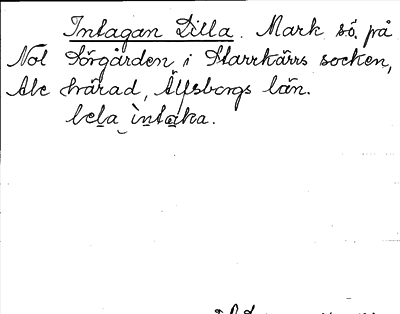 Intagan Lilla. Mark sö. på
Nol Sörgården i Starrkärrs socken,
Ale härad, Älfsborgs län.
lela intaka.